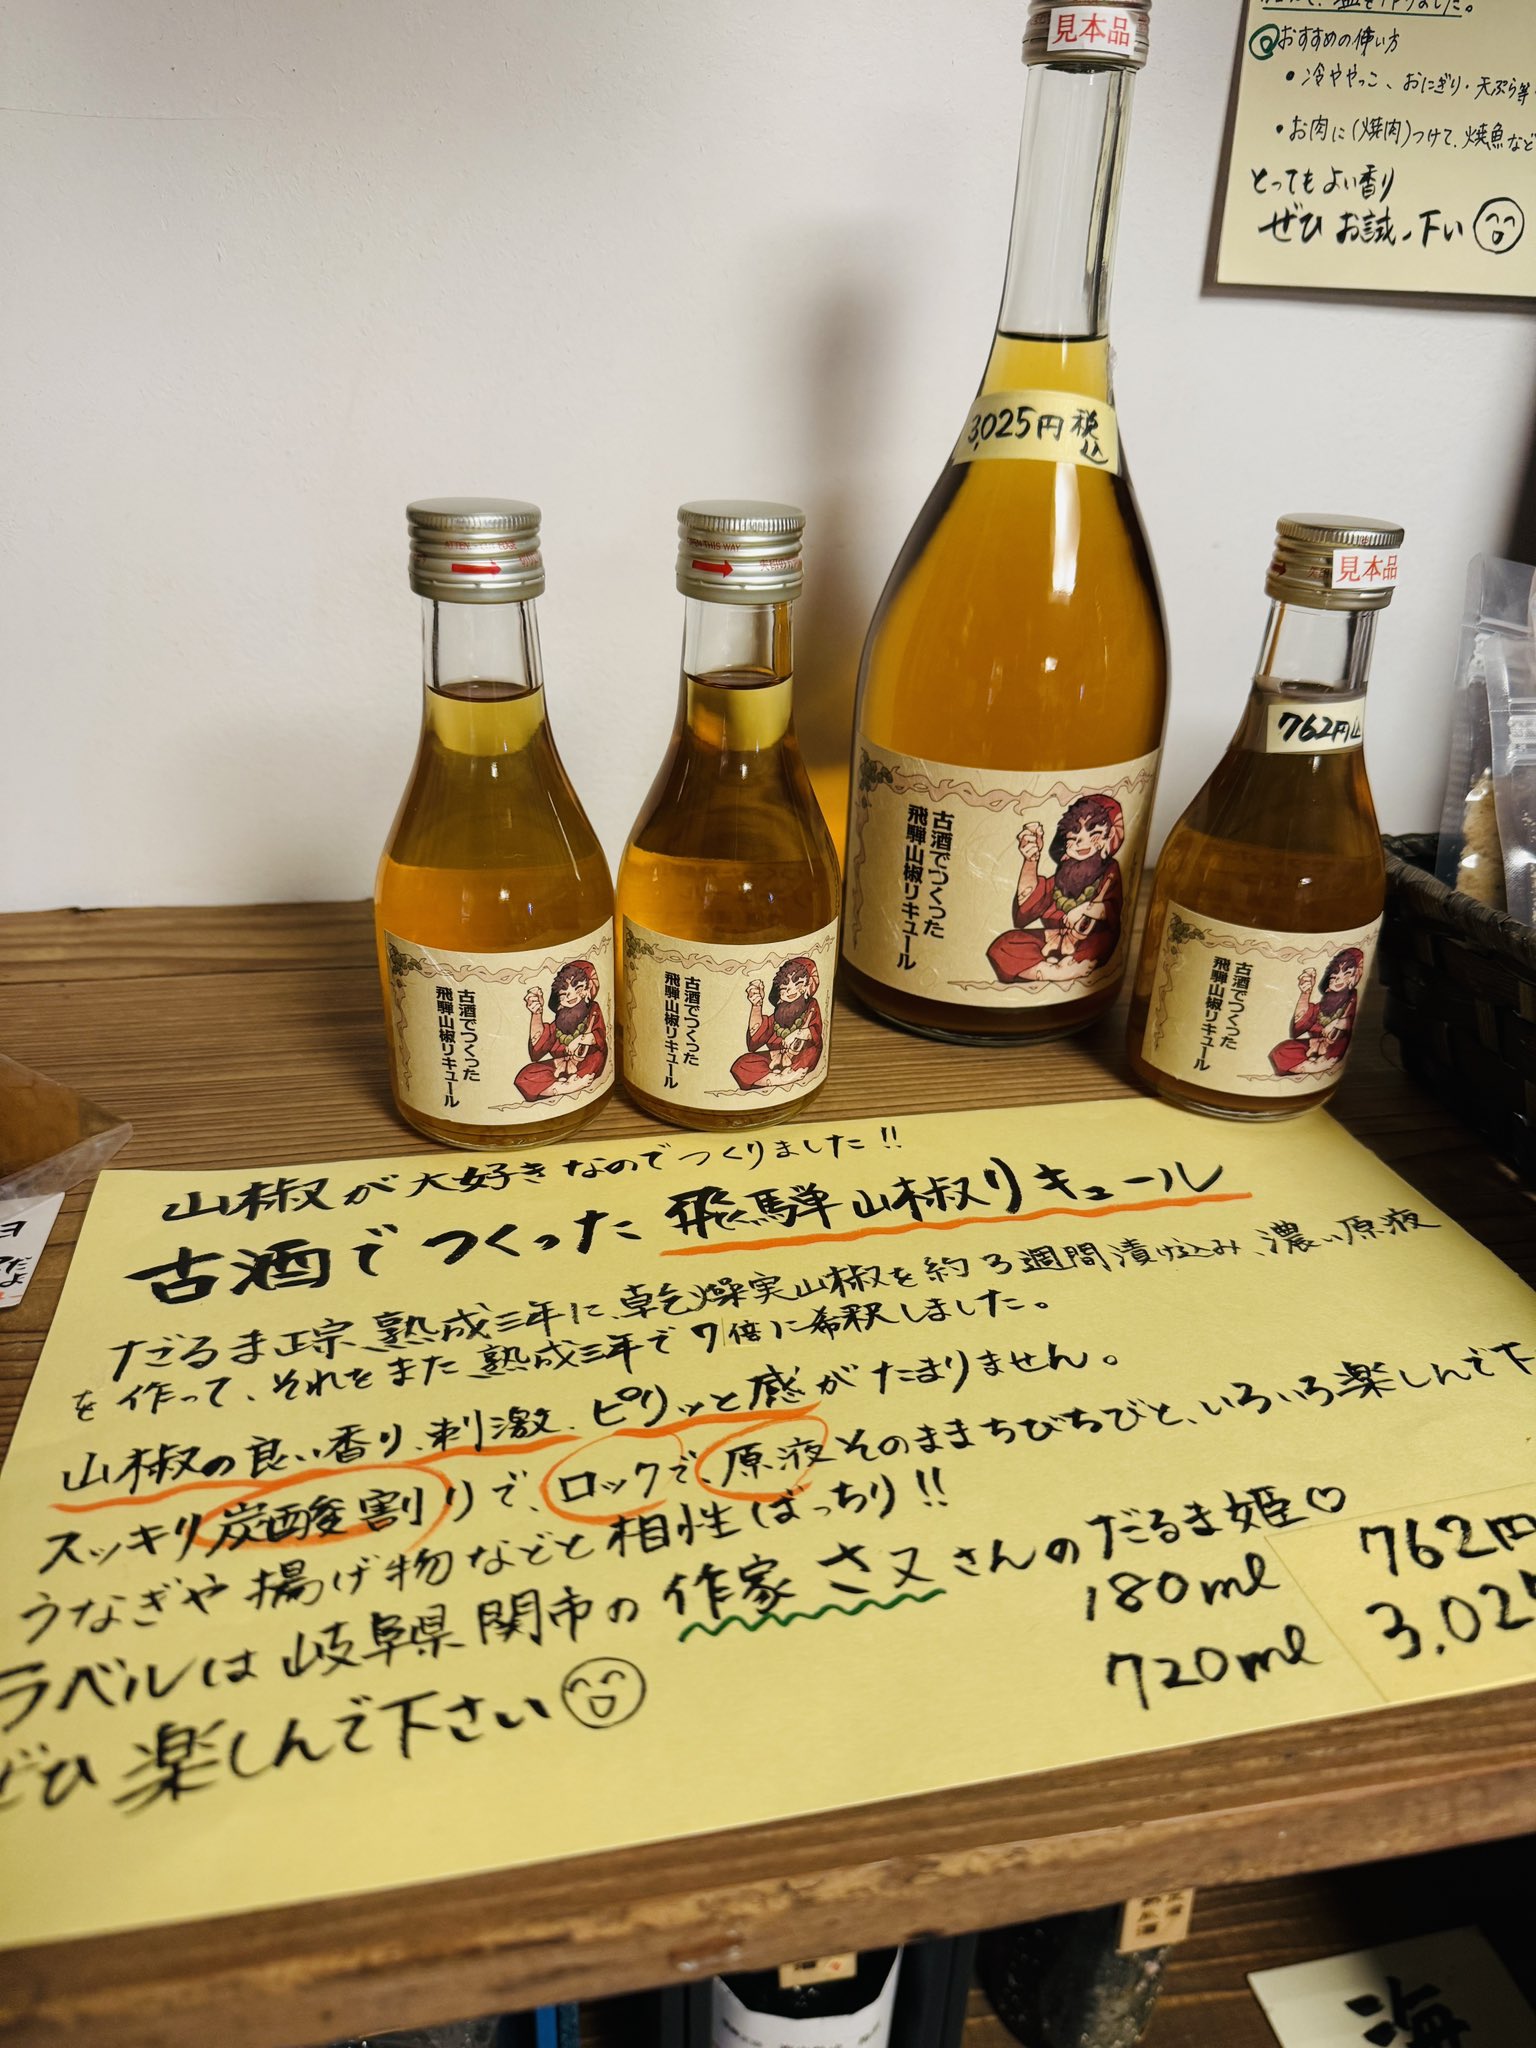 見本品
加えて、塩を作りました。
おすすめの使い方
・冷ややっこ、おにぎり・天ぷら等
・お肉に(焼肉)つけて、焼魚など
とってもよい香り
ぜひお試し下い
3,025円税込
ATTEN
OPEN THIS WAY
見本品
762円込
古酒でつくった
飛騨山椒リキュール
古酒でつくった
飛騨山椒リキュール
古酒でつくった
飛騨山椒リキュール
古酒でつくった
飛騨山椒リキュール
山椒が大好きなのでつくりました!!
古酒でつくった飛騨山椒リキュール
だるま正宗、熟成三年に、乾燥実山椒を約3週間漬け込み、濃い原液
を作って、それをまた熟成三年で7倍に希釈しました。
山椒の良い香り、刺激、ピリッと感がたまりません。
スッキリ炭酸割りで、ロックで、原液そのままちびちびと、いろいろ楽しんで下
うなぎや揚げ物などと相性ばっちり!!
ラベルは岐阜県関市の作家さヌさんのだるま姫♡
ぜひ楽しんで下さい
180ml 762円
720ml 3,025
ヨ
だよ
海